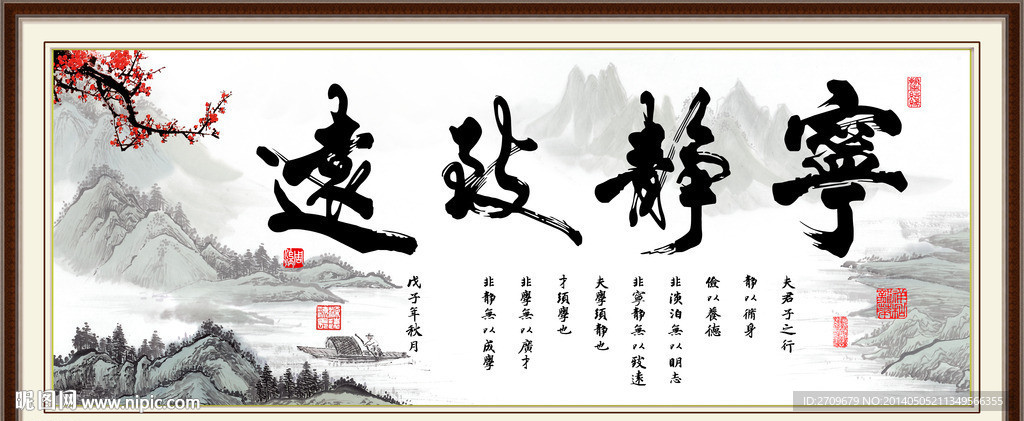 寧靜致遠
夫君子之行
靜以脩身
儉以養德
非淡泊無以明志
非寧靜無以致遠
夫學須靜也
才須學也
非學無以廣才
非靜無以成學
戊子年秋月
昵图网 www.nipic.com
ID:2709679 NO:20140505211349566355